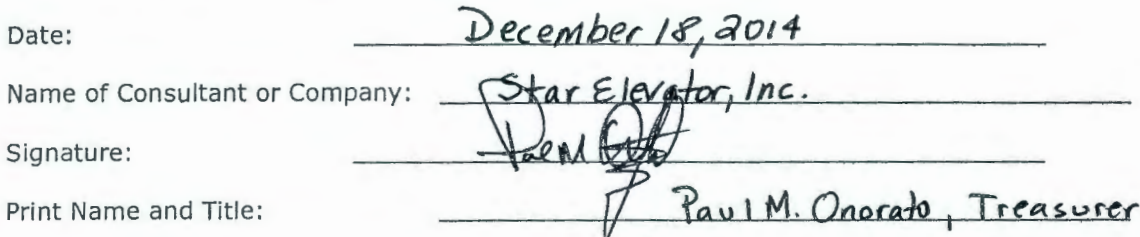 Date: December 18, 2014
Name of Consultant or Company: Star Elevator, Inc.
Signature: Paul M
Print Name and Title: Paul M. Onorato, Treasurer